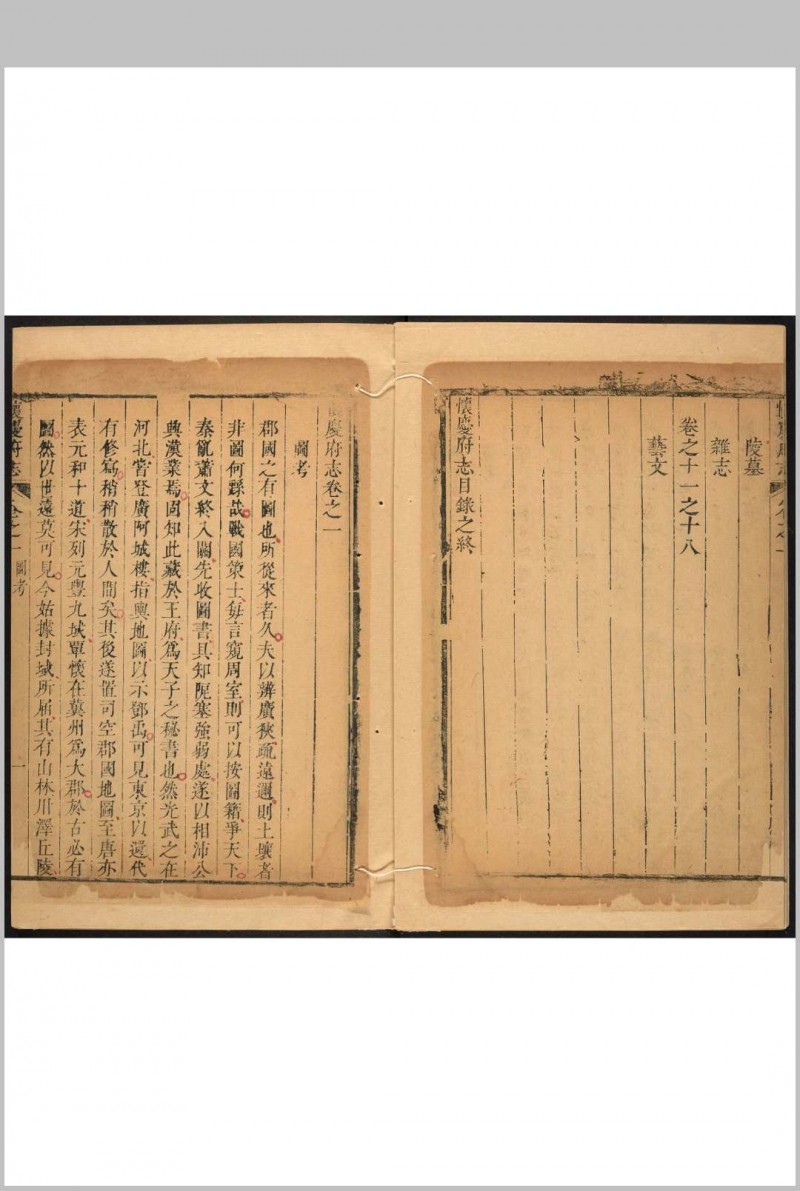 陵墓
雜志
卷之十一之十八
藝文
懷慶府志目錄之終
懷慶府志卷之一
圖考
郡國之有圖也所從來者久夫以辨廣狹疏遠邇則土壤者
非圖何繇哉戰國策士每言窺周室則可以按圖籍爭天下
秦氣蕭文終入關先收圖書具知阨塞強弱處遂以相沛公
興漢業焉固知此藏於王府爲天子之秘書也然光武之在
河北嘗登廣阿城樓指輿地圖以示鄧禹可見東京以還代
有修寫稍稍散於人間矣其後遂置司空郡國地圖至唐亦
表元和十道宋列元豐九域覃懷在冀州爲大郡於古必有
圖然以世遠莫可見今始據封域所届其有山林川澤丘陵
懷慶府志
卷之一
圖考
一